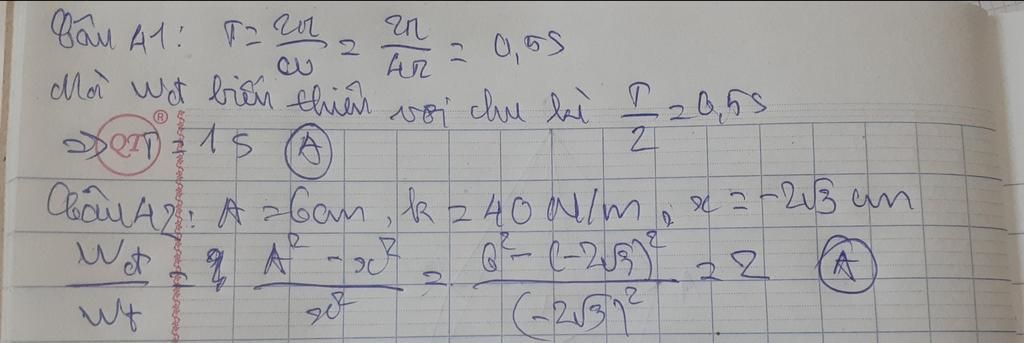 Câu 41: T = 2π/ω = 2π/4π = 0,5s
Mà Wđ biến thiên với chu kì T/2 = 0,5s
=> T = 1s (A)
QTT ®
Câu 42: A = 6cm, k = 40 N/m, x = -2√3 cm
Wđ/Wt = (A² - x²)/x² = (6² - (-2√3)²)/(-2√3)² = 2 (A)